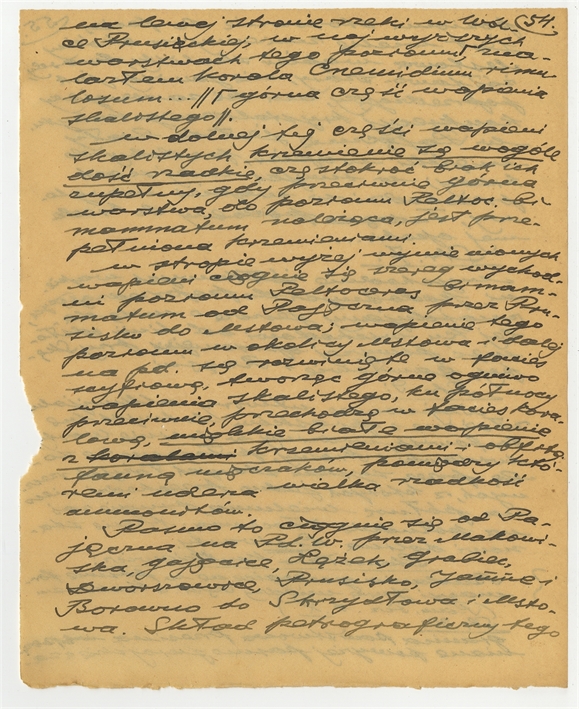 na lewej stronie rzeki w Wól- 54.
ce Prusickiej, w najwyższych
warstwach tego poziomu, zna-
lazłem korola Cnemidium rimu
losum...||Γ górna część wapienia
skalistego||.
w dolnej tej części wapieni
skalistych krzemienie są wogóle
dość rzadkie, częstokroć brak ich
zupełny, gdy przeciwnie górna
warstwa, do poziomu Peltoc. bi-
mammatum należąca, jest prze-
pełniona krzemieniami.
w stropie wyżej wymienionych
wapieni ciągnie się szereg wychod-
ni poziomu Peltoceras bimam-
matum od Pajęczna przez Pru-
sisko do Mstowa; wapienie tego
poziomu w okolicy Mstowa i dalej
na pd. są rozwinięte w facies
scyfiową, tworząc górne ogniwo
wapienia skalistego, ku północy
przeciwnie, przechodzą w facies kora-
lową, miękkie białe wapienie
z koralami krzemieniami i obfitą
fauną mięczaków, pomiędzy któ-
remi uderza wielka rzadkość
ammonitów.
Pasmo to ciągnie się od Pa-
jęczna na Pd. W. przez Makowi-
ska, Gajęcice, Łążek, Grabiec,
Dworszowice, Prusisko, Janinę i
Borowno do Skrzydłowa i Msto-
wa. Skład petrograficzny tego